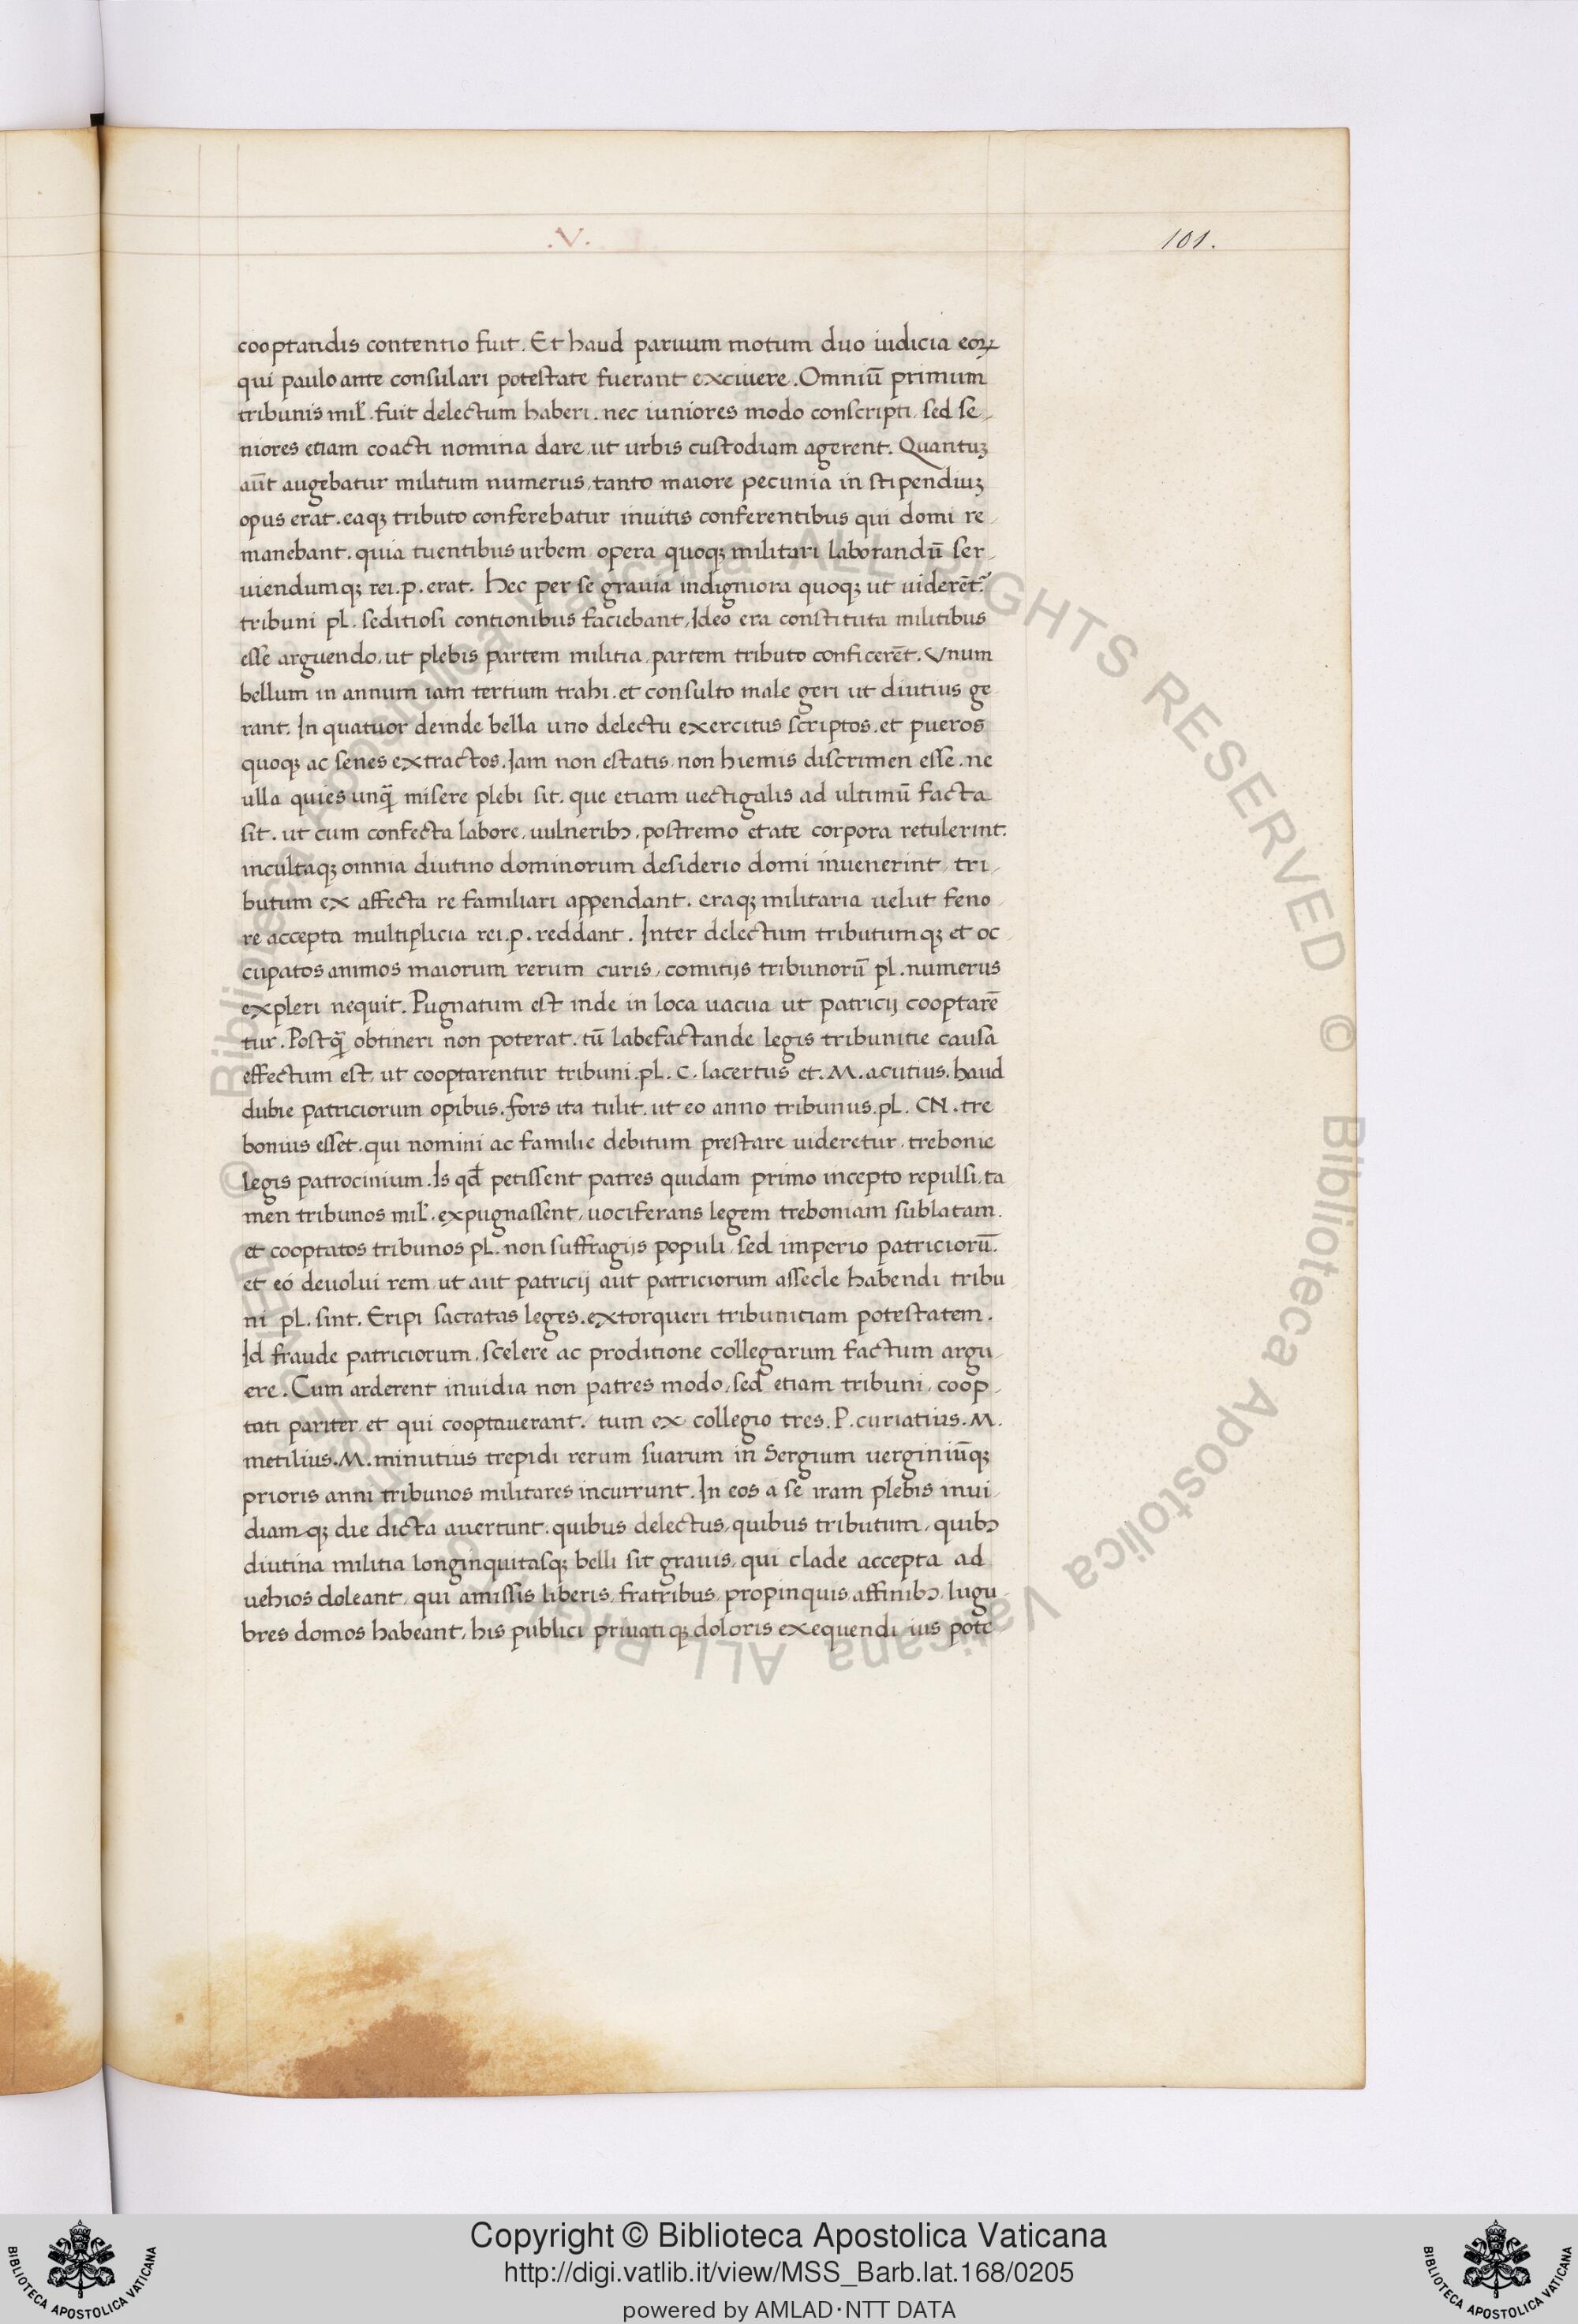 .V.
101.
cooptandis contentio fuit. Et haud paruum motum duo iudicia eoꝝ
qui paulo ante consulari potestate fuerant exciuere. Omniū primum
tribunis mil̄. fuit delectum haberi. nec iuniores modo conscripti, sed se-
niores etiam coacti nomina dare, ut urbis custodiam agerent. Quantuꝫ
aūt augebatur militum numerus, tanto maiore pecunia in stipendiuꝫ
opus erat. eaqꝫ tributo conferebatur inuitis conferentibus qui domi re-
manebant. quia tuentibus urbem opera quoqꝫ militari laborandū ser-
uiendumqꝫ rei. p. erat. Hec per se grauia indigniora quoqꝫ ut uiderēt᷑
tribuni pl. seditiosi contionibus faciebant, Ideo era constituta militibus
esse arguendo. ut plebis partem militia, partem tributo conficerēt. Vnum
bellum in annum iam tertium trahi. et consulto male geri ut diutius ge
rant. In quatuor deinde bella uno delectu exercitus scriptos. et pueros
quoqꝫ ac senes extractos. Iam non estatis, non hiemis discrimen esse. ne
ulla quies unq̃ misere plebi sit. que etiam uectigalis ad ultimū facta
sit. ut cum confecta labore, uulneribꝰ, postremo etate corpora retulerint.
incultaqꝫ omnia diutino dominorum desiderio domi inuenerint, tri-
butum ex affecta re familiari appendant. eraqꝫ militaria uelut feno
re accepta multiplicia rei. p. reddant. Inter delectum tributumqꝫ et oc
cupatos animos maiorum rerum curis, comitijs tribunorū pl. numerus
expleri nequit. Pugnatum est inde in loca uacua ut patricij cooptarē
tur. Postq̃ obtineri non poterat. tū labefactande legis tribunitie causa
effectum est, ut cooptarentur tribuni. pl. C. lacertus et. M. acutius. haud
dubie patriciorum opibus. fors ita tulit. ut eo anno tribunus. pl. CN. tre
bonius esset. qui nomini ac familie debitum prestare uideretur, trebonie
legis patrocinium. Is qđ petissent patres quidam primo incepto repulsi, ta
men tribunos mil̄. expugnassent, uociferans legem treboniam sublatam.
et cooptatos tribunos pl. non suffragijs populi, sed imperio patriciorū.
et eo deuolui rem, ut aut patricij aut patriciorum assecle habendi tribu
ni pl. sint. Eripi sacratas leges. extorqueri tribunitiam potestatem.
Id fraude patriciorum, scelere ac proditione collegarum factum argu-
ere. Cum arderent inuidia non patres modo, sed etiam tribuni, coop-
tati pariter, et qui cooptauerant. tum ex collegio tres. P. curiatius. M.
metilius. M. minutius trepidi rerum suarum in Sergium uerginiūqꝫ
prioris anni tribunos militares incurrunt. In eos a se iram plebis inui-
diamqꝫ die dicta auertunt. quibus delectus, quibus tributum, quibꝰ
diutina militia longinquitasqꝫ belli sit grauis, qui clade accepta ad
uehios doleant, qui amissis liberis, fratribus, propinquis, affinibꝰ, lugu-
bres domos habeant, his publici priuatiqꝫ doloris exequendi ius pote
© Biblioteca Apostolica Vaticana ALL RIGHTS RESERVED © Biblioteca Apostolica Vaticana ALL RIGHTS RESERVED
Copyright © Biblioteca Apostolica Vaticana
http://digi.vatlib.it/view/MSS_Barb.lat.168/0205
powered by AMLAD·NTT DATA
BIBLIOTECA APOSTOLICA VATICANA
BIBLIOTECA APOSTOLICA VATICANA